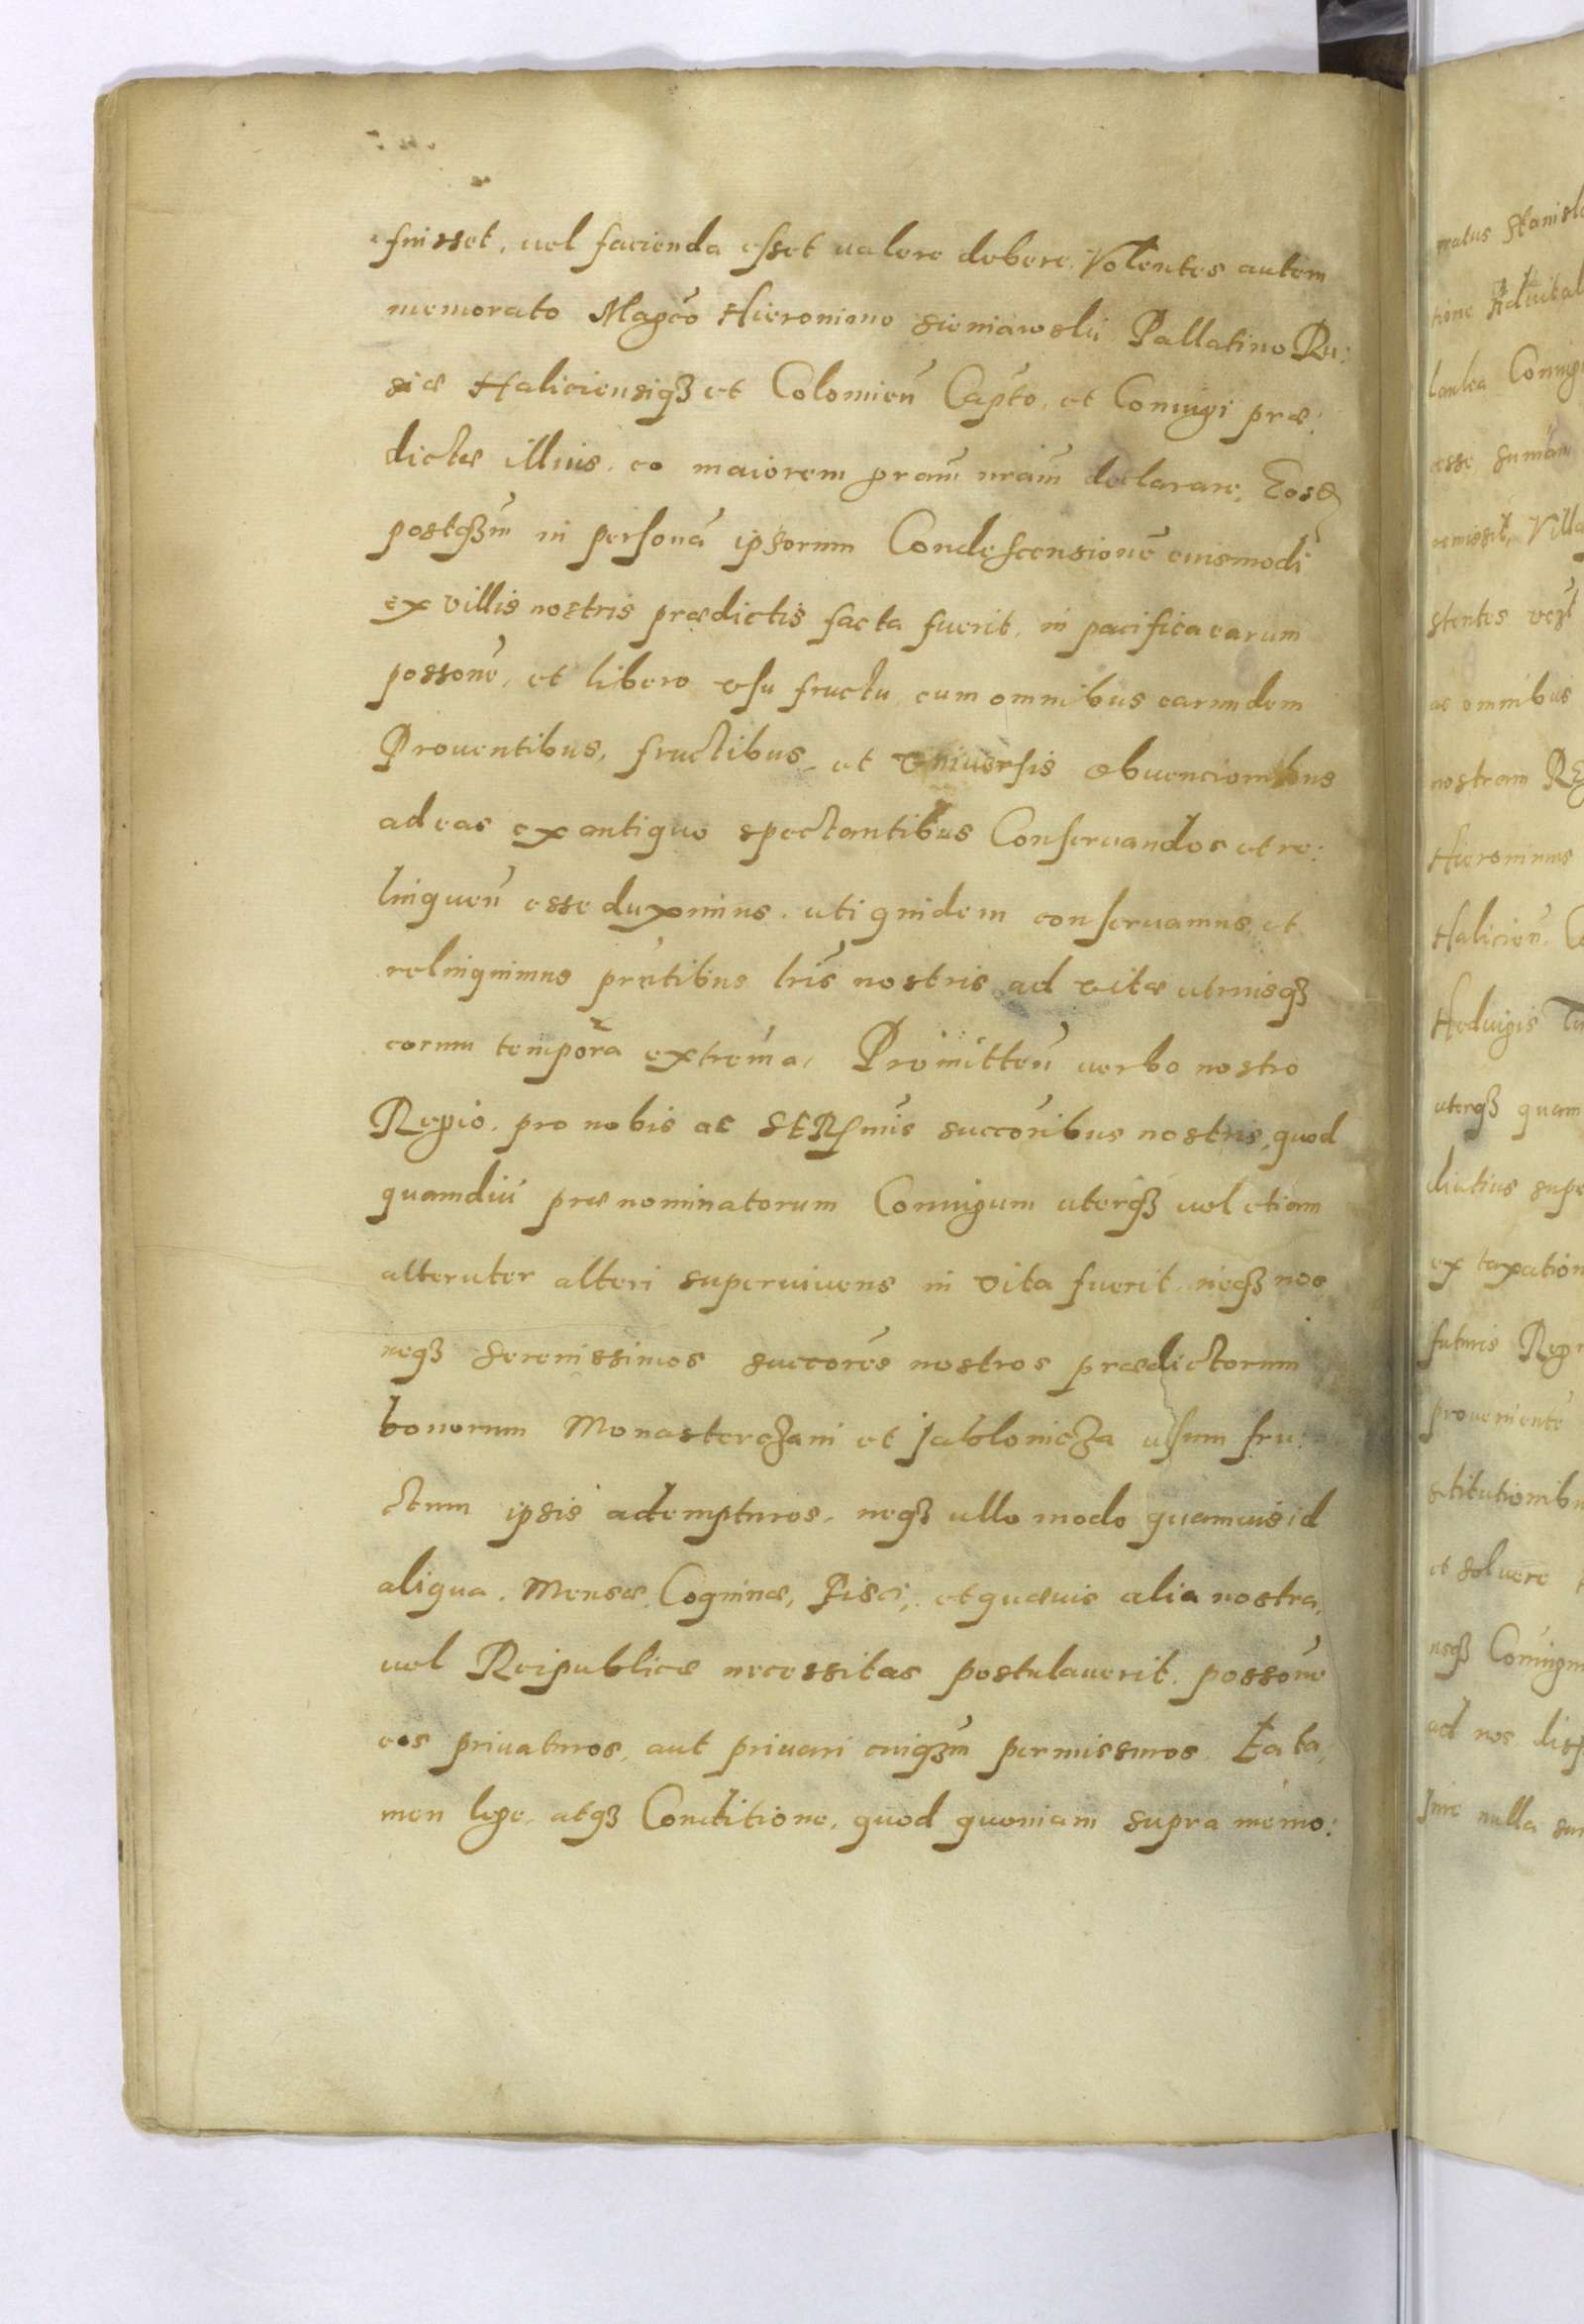 fuisset, vel facienda esset valere debere. Volentes autem
memorato Magco Hieronimo Sieniawskii Pallatino Ru:
siæ Haliciensiqȝ et Colomien̄ Capto, et Coniugi præ:
dictæ illius, eo maiorem gram̄ nram̄ declarare, Eosq
postqȝm in personā ipsorum Condescensionē eiusmodi
ex villis nostris prædictis facta fuerit, in pacifica earum
possonē, et libero vsu fructu cum omnibus earundem
Prouentibus, fructibus, et vniuersis obuencionibus
ad eas ex antiquo spectantibus Conseruandos et re:
linquen̄ esse duximus, uti quidem conseruamus et
relinquimus prn̄tibus lrīs nostris ad vitæ utriusqȝ
eorum tempora extrema, Promitten̄ verbo nostro
Regio, pro nobis ac SERsmis succōribus nostris, quod
quamdiu prænominatorum Coniugum uterqȝ vel etiam
alteruter alteri superuiuens in vita fuerit neqȝ nos
neqȝ Serenissimos succorēs nostros prædictorum
bonorum Monasterczani et Jablonicza usum fru:
ctum ipsis adempturos, neqȝ ullo modo quamuis id
aliqua, Mensæ, Coquinæ, Fisci, et quæuis alia nostra,
vel Reipublicæ necessitas postulauerit, possōne
eos priuaturos, aut priuari cuiqȝm permissuros. Ea ta:
men lege, atqȝ Conditione, quod quoniam supra memo:
matus Stanisl
tione Aduital
lanka Coniug
esse sumam
Villa
stentes
ac omnibus
nostram
Hieronimus
Halicien̄
Heduigis
uterqȝ quam
diutius supe
ex taxation
futuris Reg
prouenientē
stitutionibu
et soluere
usqȝ Coniugu
ad nos disp
Jure nulla